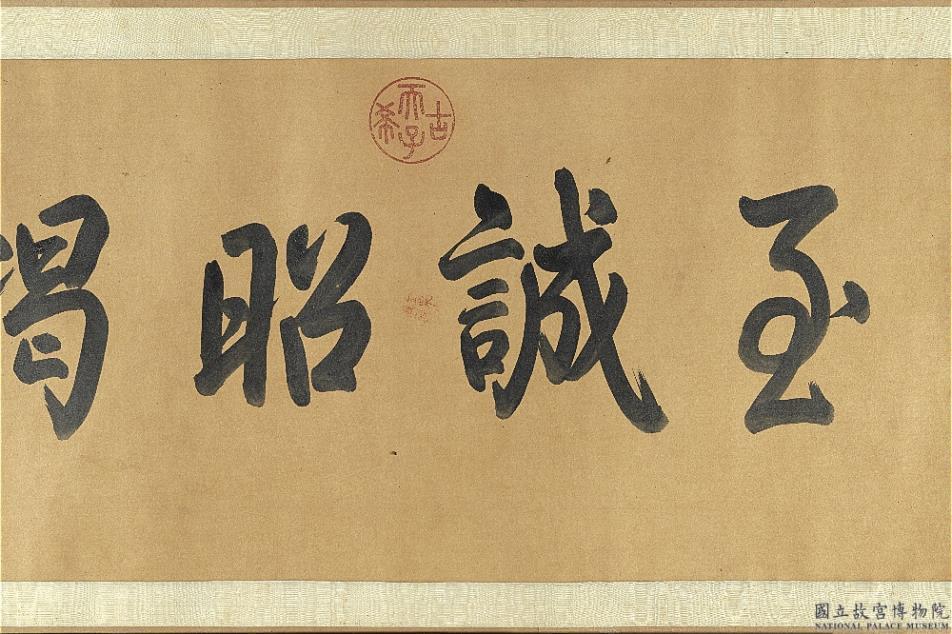 至誠昭揭
古希天子
國立故宮博物院
NATIONAL PALACE MUSEUM